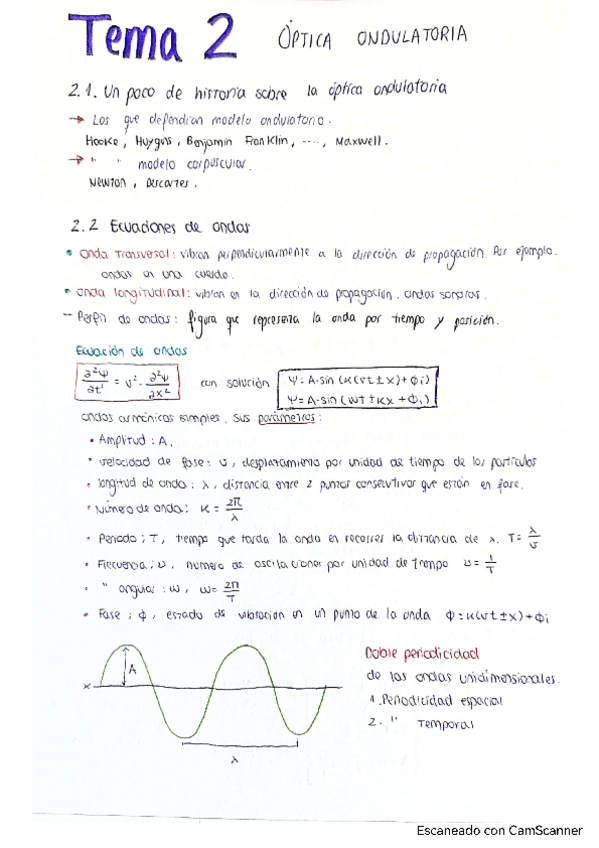 Tema 2 ÓPTICA ONDULATORIA
2.1. Un poco de historia sobre la óptica ondulatoria
→ Los que dependían modelo ondulatorio.
Hooke, Huygens, Benjamin Franklin, ...., Maxwell.
→ " " modelo corpuscular.
Newton, Descartes.
2.2 Ecuaciones de ondas
• Onda transversal: vibran perpendicularmente a la dirección de propagación. Por ejemplo.
ondas en una cuerda.
• Onda longitudinal: vibran en la dirección de propagación. ondas sonoras.
- Perfil de ondas: figura que representa la onda por tiempo y posición.
Ecuación de ondas
∂²Ψ/∂t² = v² · ∂²Ψ/∂x² con solución Ψ = A·sin (K(vt±x)+ϕi)
Ψ = A·sin (wt ± kx + ϕi)
ondas armónicas simples. Sus parámetros:
• Amplitud: A.
• velocidad de fase: v, desplazamiento por unidad de tiempo de las partículas
• longitud de onda: λ, distancia entre 2 puntos consecutivos que están en fase.
• Número de onda: K = 2π/λ
• Periodo: T, tiempo que tarda la onda en recorrer la distancia de λ. T = λ/v
• Frecuencia: υ, número de oscilaciones por unidad de tiempo υ = 1/T
• " angular: w, w = 2π/T
• Fase: ϕ, estado de vibración en un punto de la onda ϕ = k(vt±x)+ϕi
Doble periodicidad
de las ondas unidimensionales.
1. Periodicidad espacial
2. " Temporal
A
x
λ
Escaneado con CamScanner